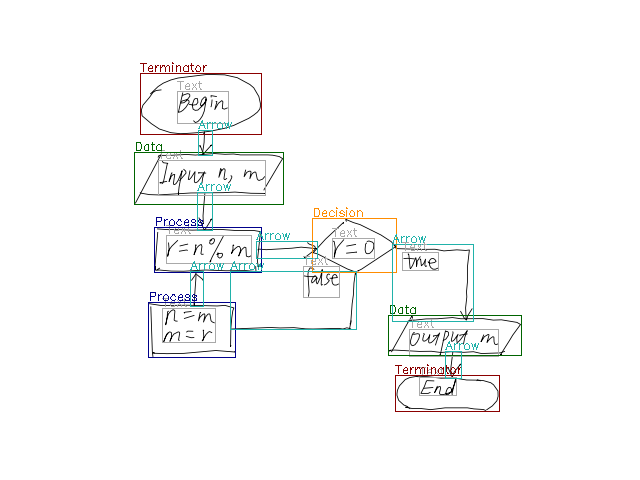 Terminator
Text
Begin
Arrow
Data
Text
Input n, m
Arrow
Process
Text
r=n% m
Arrow
Decision
Text
r=0
Arrow
Text
true
Text
false
Arrow
Arrow
Process
Text
n=m
m=r
Data
Text
output m
Arrow
Terminator
Text
End